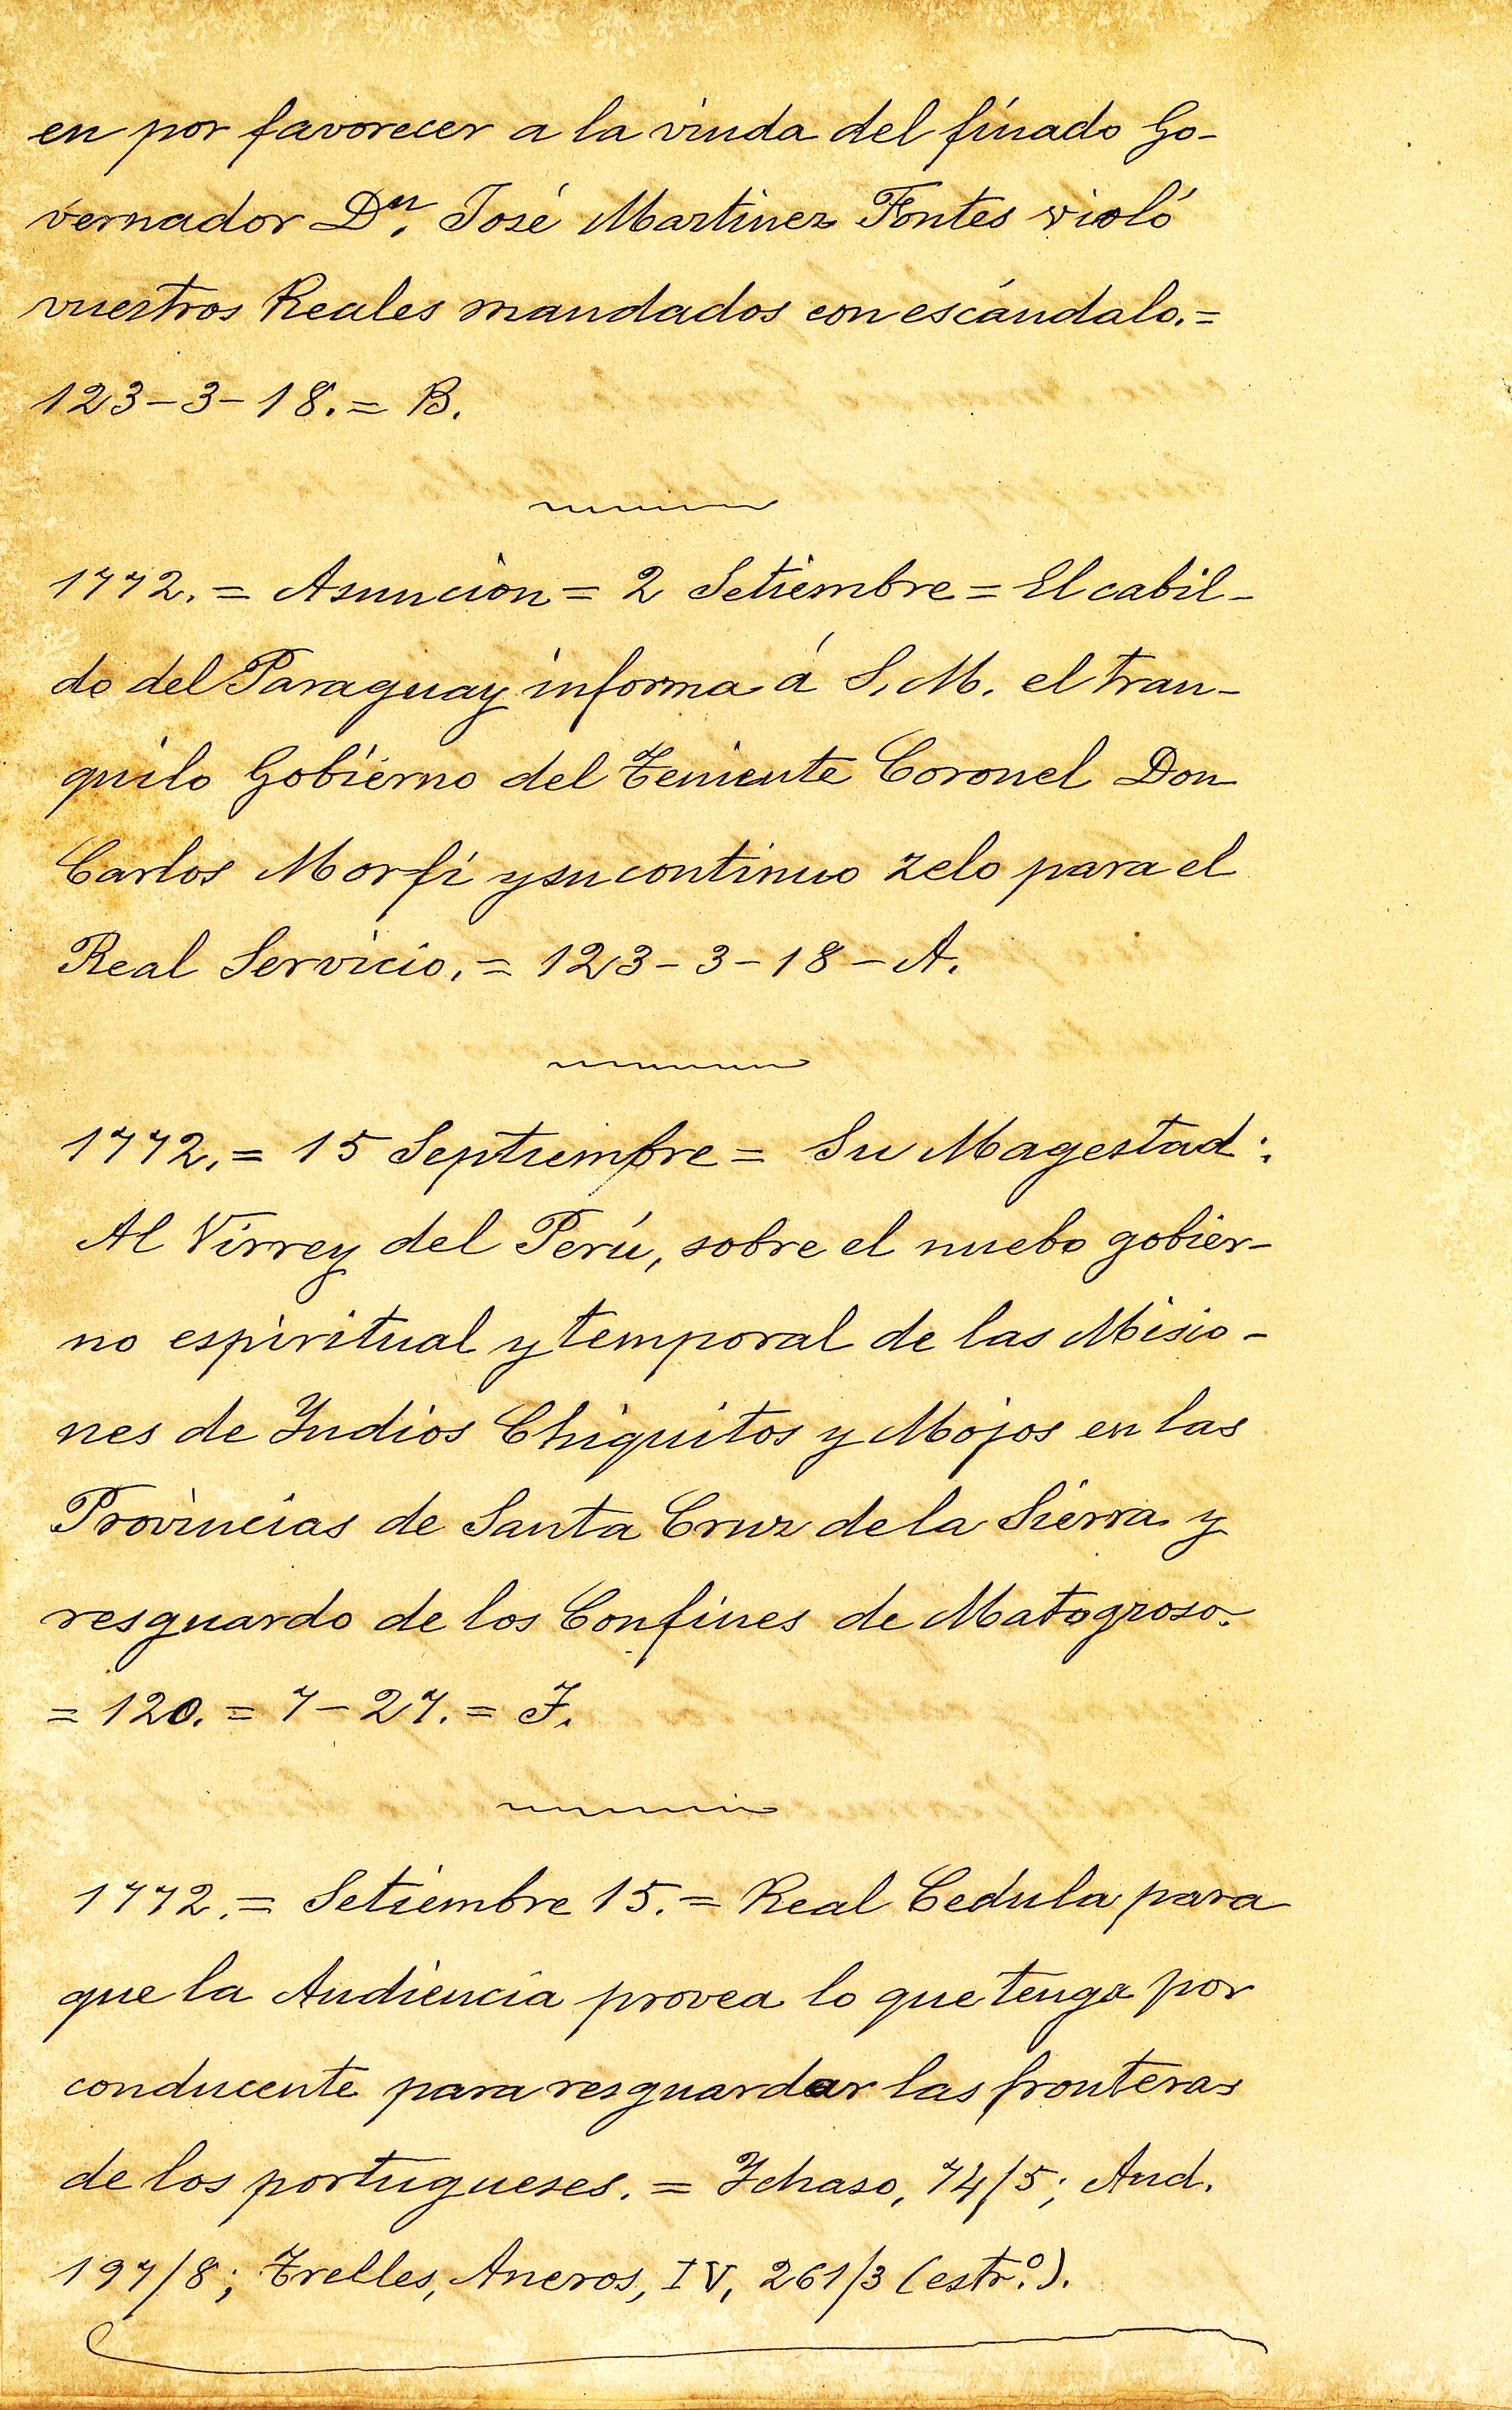 en por favorecer a la viuda del finado Go-
vernador Dⁿ. José Martinez Fontes violó
vuestros Reales mandados con escándalo.=
123-3-18.= B.
1772.= Asuncion= 2 Setiembre= El cabil-
do del Paraguay informa á S. M. el tran-
quilo Gobierno del Teniente Coronel Don
Carlos Morfi y su continuo zelo para el
Real Servicio.= 123-3-18-A.
1772.= 15 Septiembre= Su Magestad:
Al Virrey del Perú, sobre el nuebo gobier-
no espiritual y temporal de las Misio-
nes de Yndios Chiquitos y Mojos en las
Provincias de Santa Cruz de la Sierra y
resguardo de los Confines de Matogroso.
= 120.= 7-27.= J.
1772.= Setiembre 15.= Real Cedula para
que la Audiencia provea lo que tenga por
conducente para resguardar las fronteras
de los portugueses.= Ychaso, 74/5; Aud.
197/8; Trelles, Aneros, IV, 261/3 (estr.º).